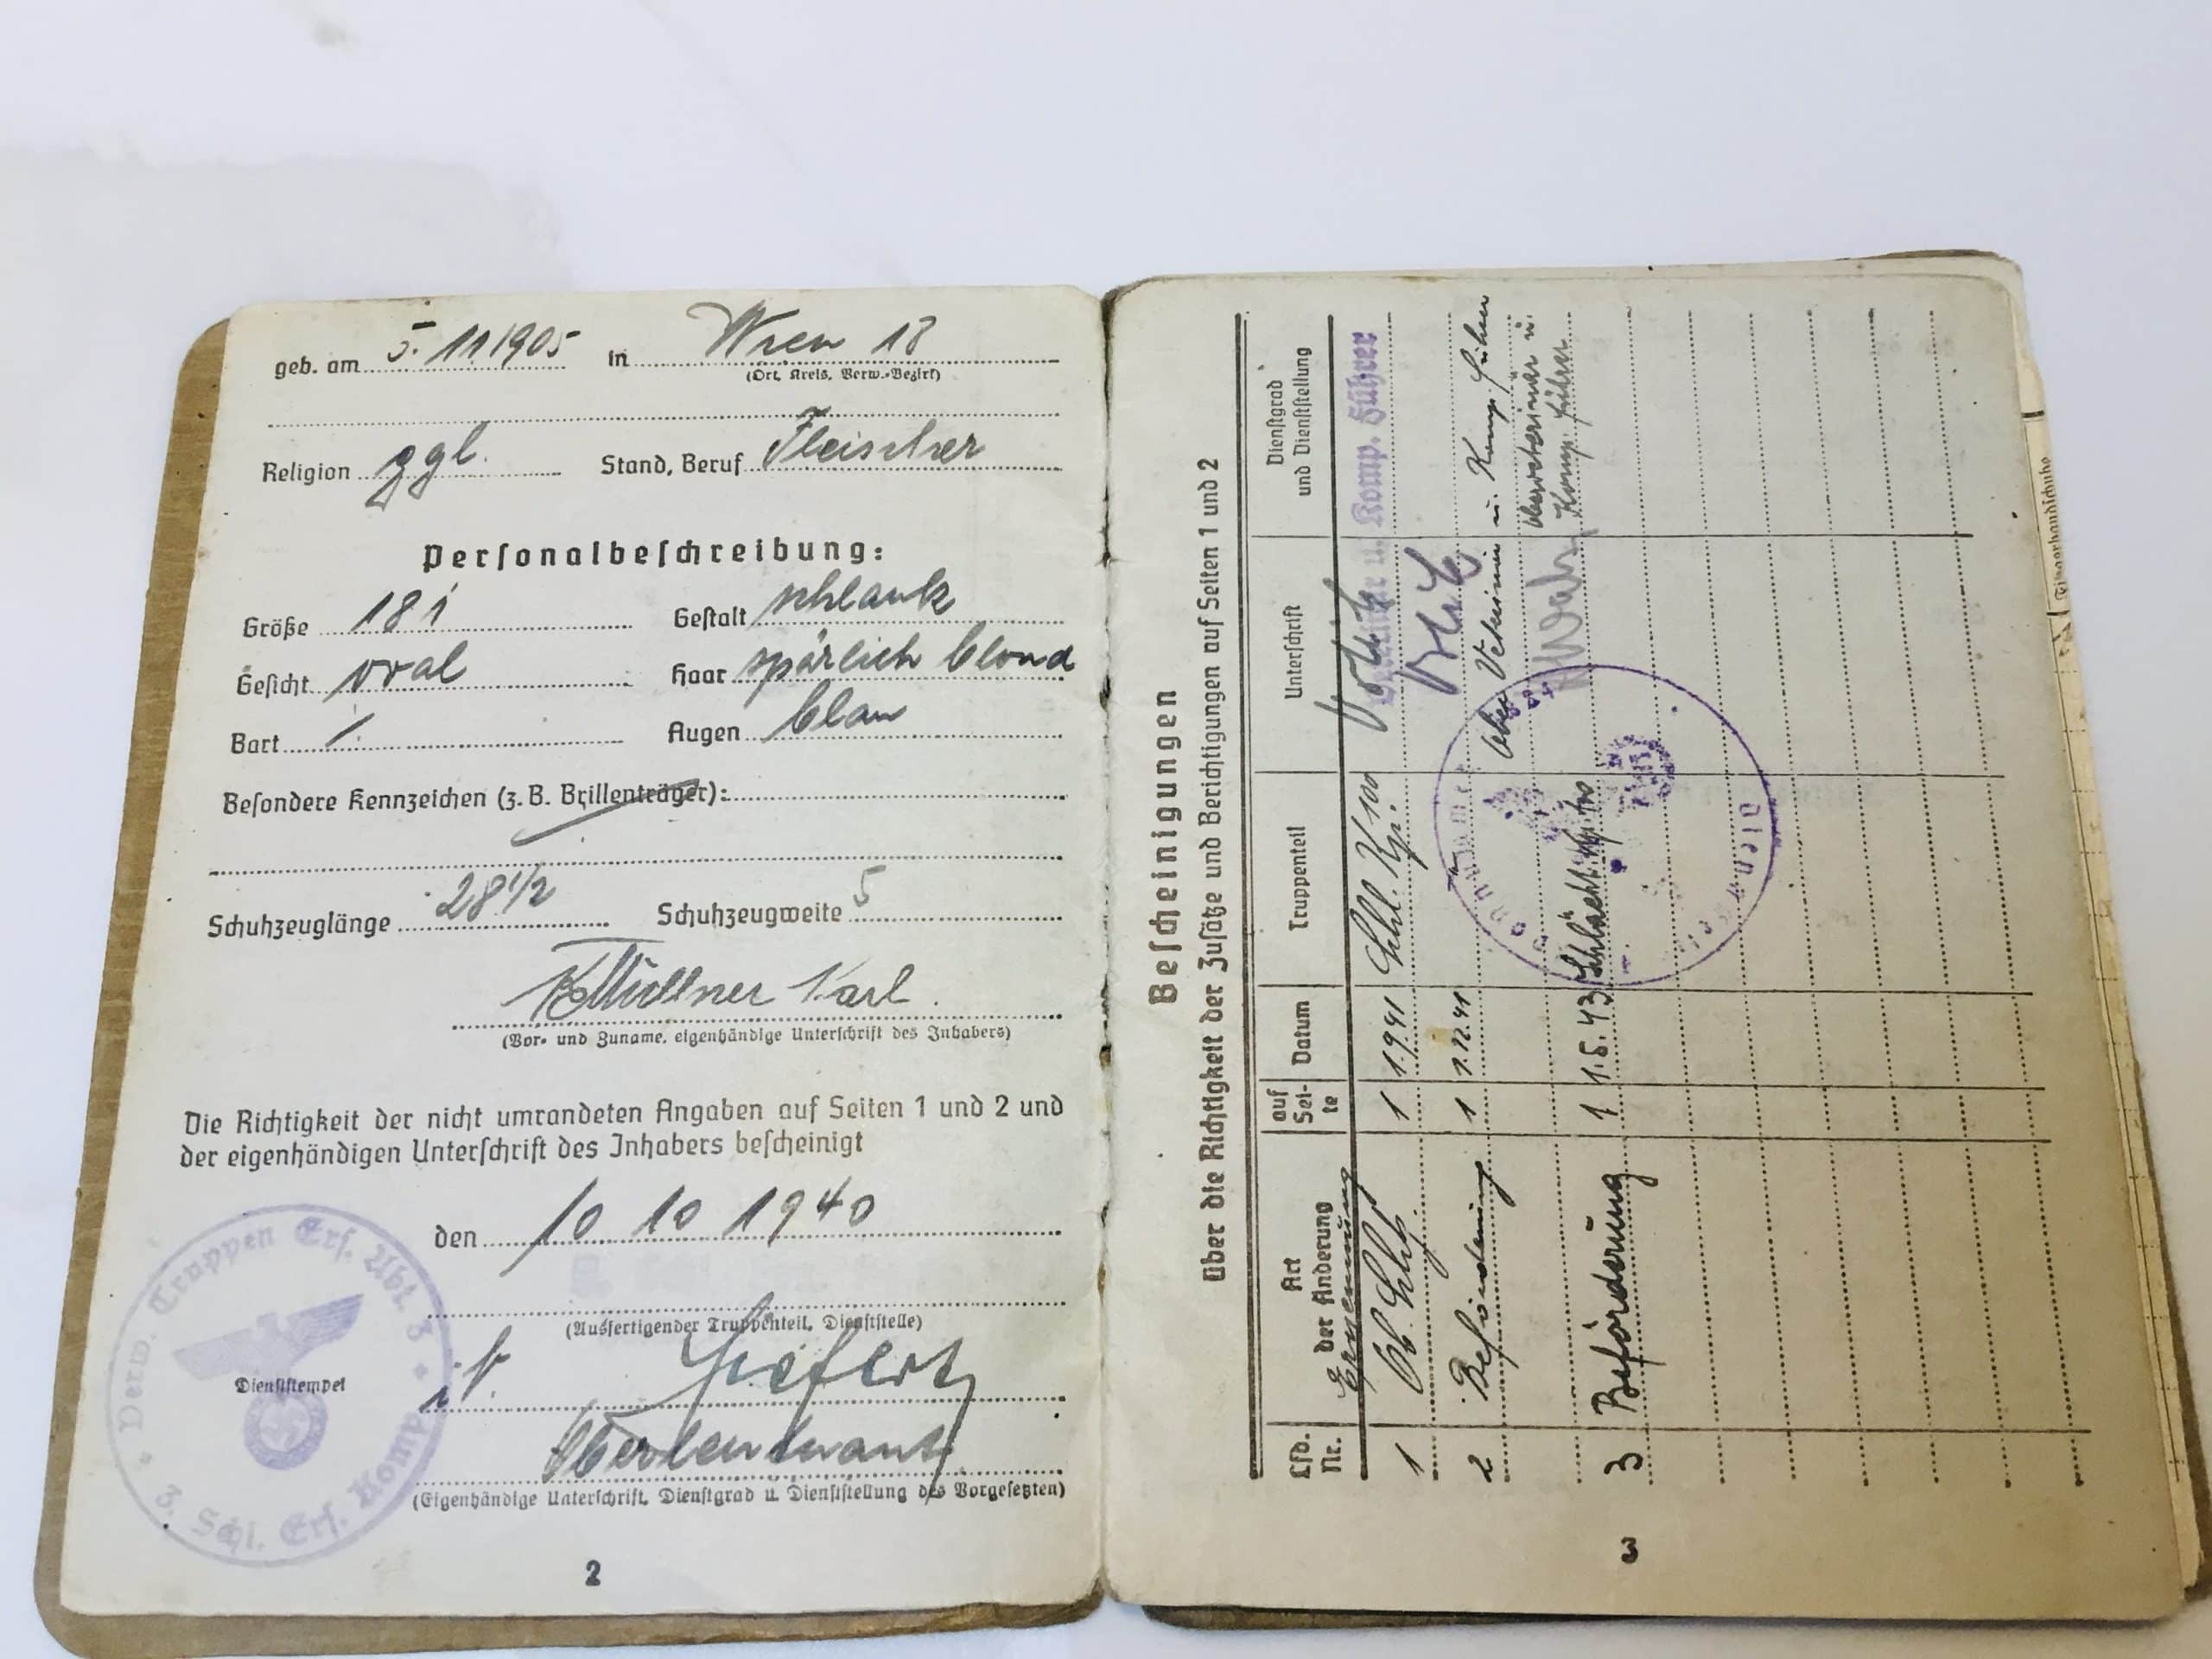 geb. am 5. 11 1905 in Wien 18
(Ort, Kreis, Verw.-Bezirk)
Religion ggl. Stand, Beruf Fleischer
Personalbeschreibung:
Größe 181 Gestalt schlank
Gesicht oval Haar spärlich blond
Bart /. Augen blau
Besondere Kennzeichen (z. B. Brillenträger):
Schuhzeuglänge 28 1/2 Schuhzeugweite 5
Müllner Karl.
(Vor- und Zuname, eigenhändige Unterschrift des Inhabers)
Die Richtigkeit der nicht umrandeten Angaben auf Seiten 1 und 2 und
der eigenhändigen Unterschrift des Inhabers bescheinigt
den 10 10 1940
(Ausfertigender Truppenteil, Dienststelle)
Oberleutnant
(Eigenhändige Unterschrift, Dienstgrad u. Dienststellung des Vorgesetzten)
Dienststempel
Verw. Truppen Ers. Abt. 3
3. Schl. Ers. Komp.
2
Bescheinigungen
über die Richtigkeit der Zusätze und Berichtigungen auf Seiten 1 und 2
Lfd. Nr. Art der Änderung auf Seite Datum Truppenteil Unterschrift Dienstgrad und Dienststellung
Ernennung u. Komp. Führer
1 Ob. Schtz. 1 1.9.41 Schl. Kp.
2 Beförderung 1 1.12.41 Ober Veterinär u. Komp. Führer
Oberveterinär u.
Komp. Führer
3 Beförderung 1 1.5.43 Schlächt.
3
Fingerhandschuhe